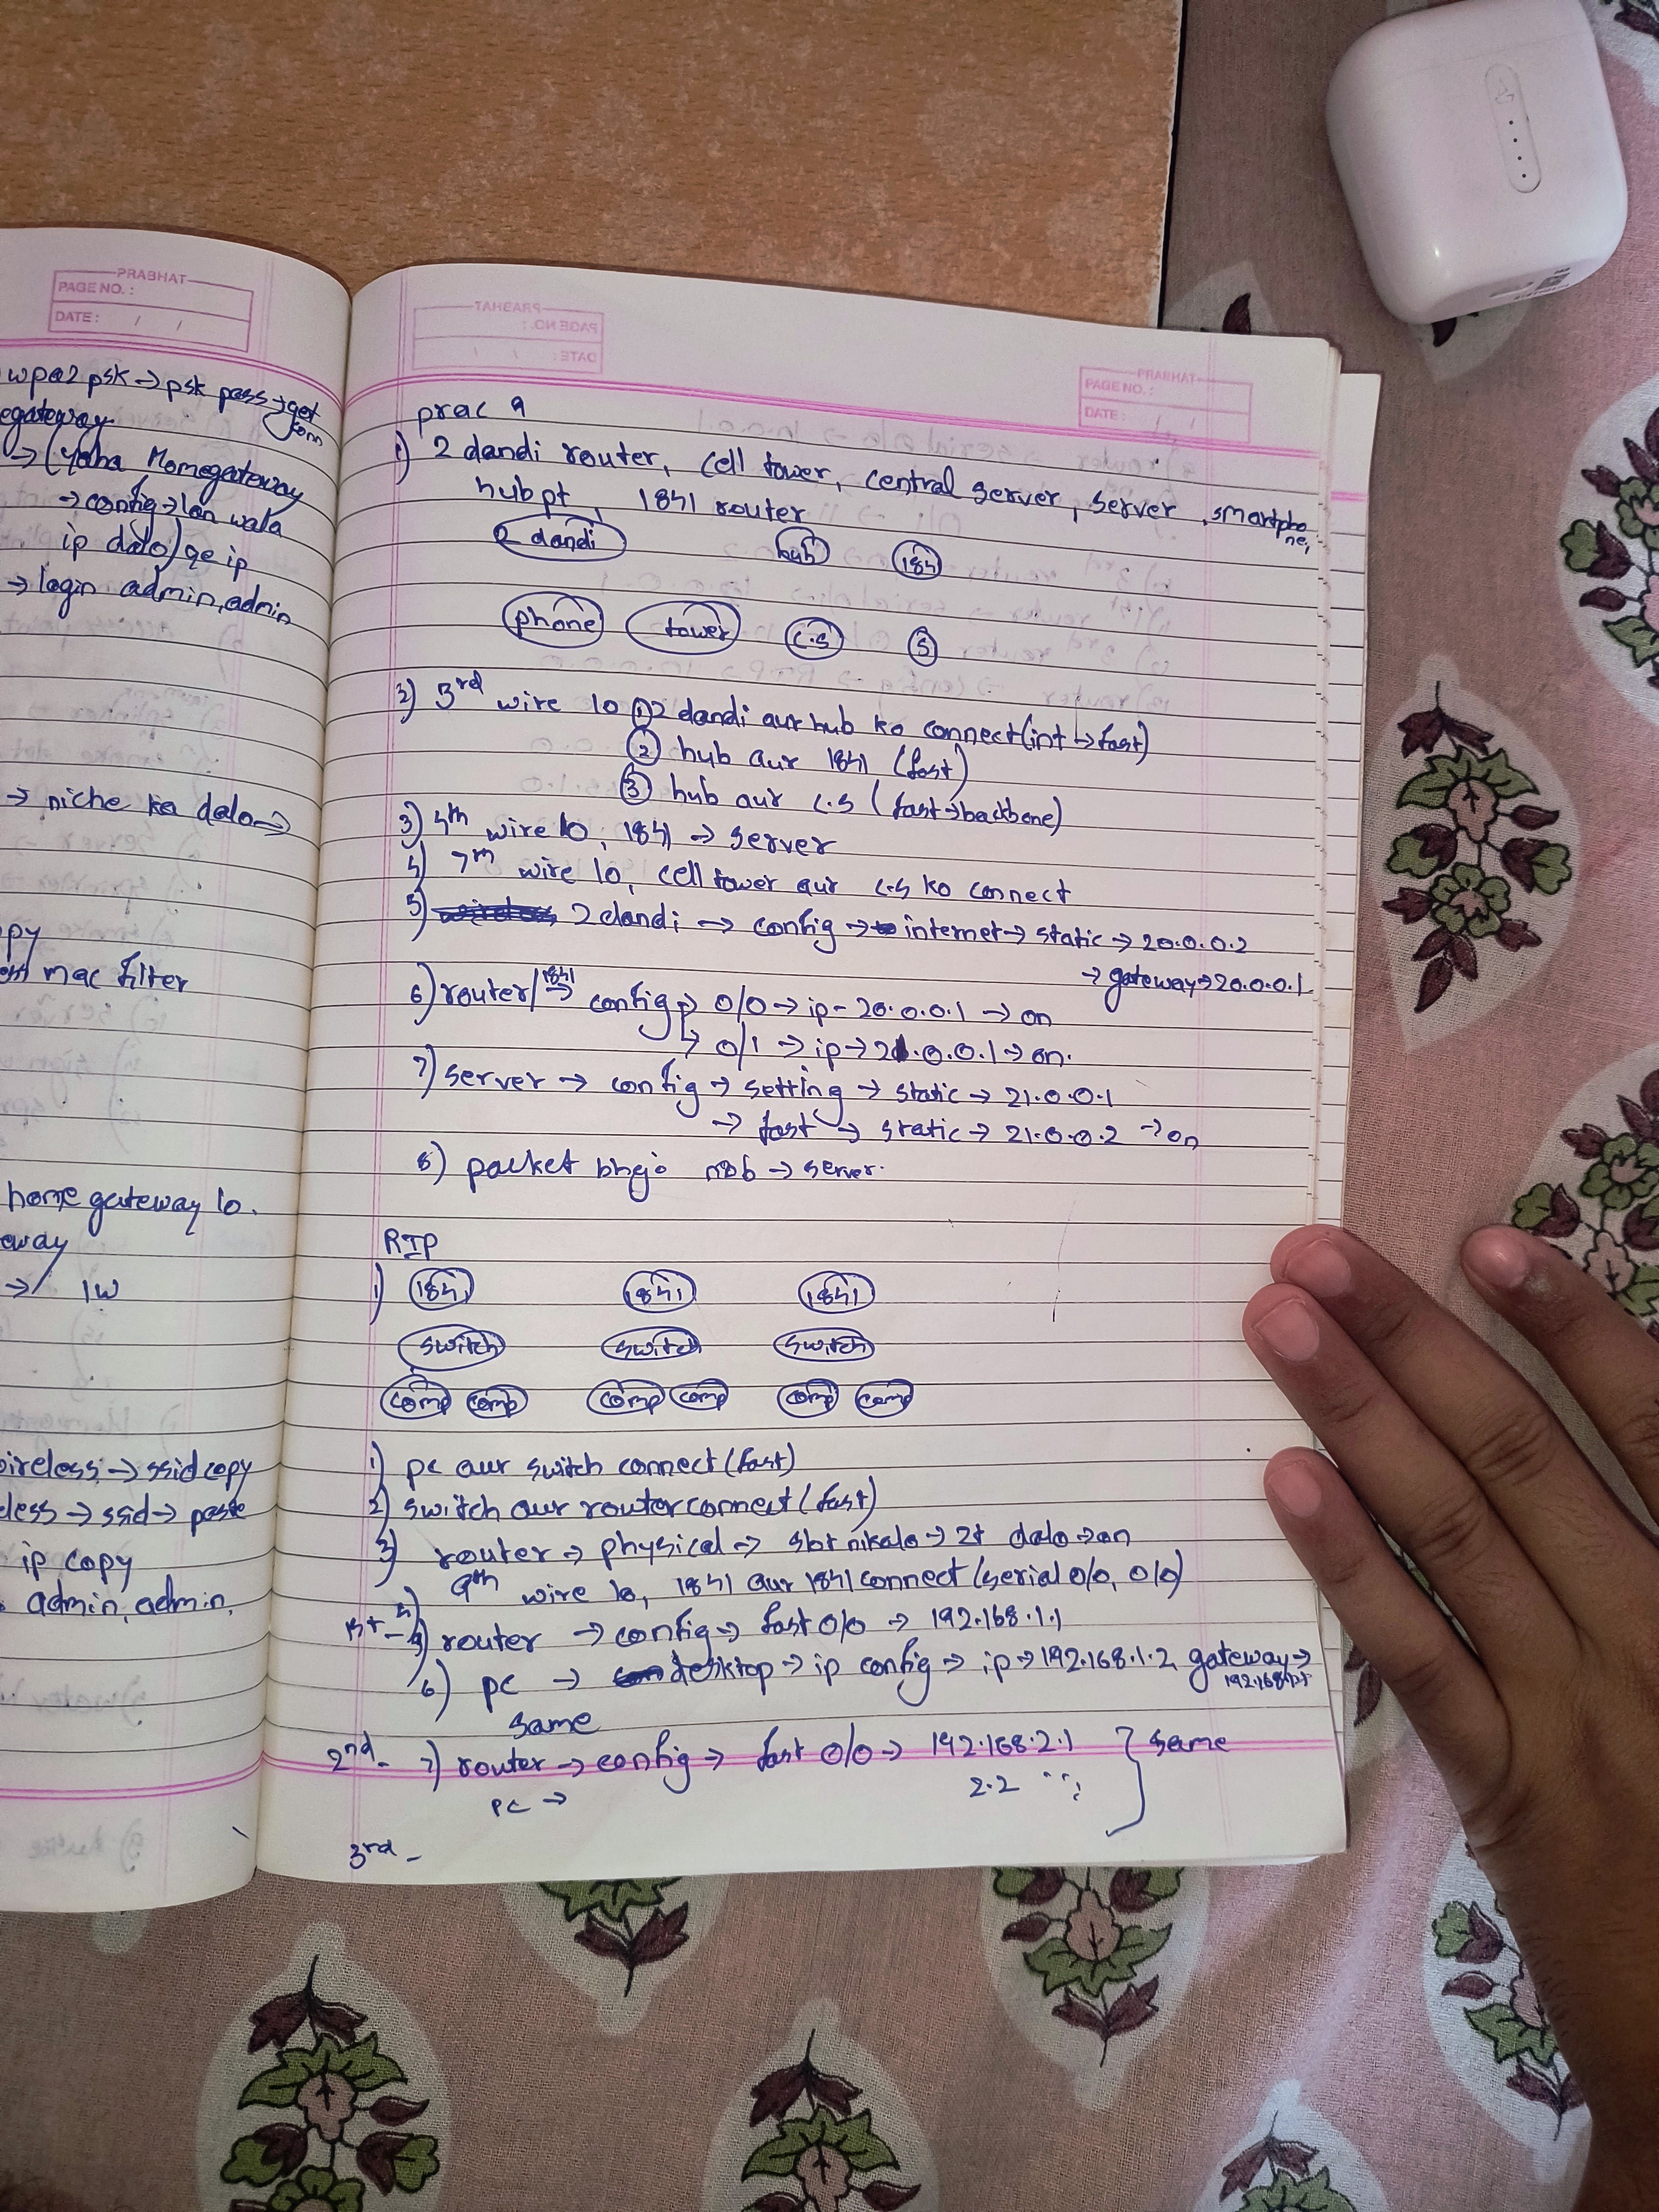 PRABHAT
PAGE NO. :
DATE : / /
wpa2 psk → psk pass → get
egateway
→ (yaha Homegateway
→ config → lan wala
ip dalo) ge ip
→ login admin, admin
→ niche ka dalo →
py
mac filter
home gateway lo.
eway
→ / IW
wireless → ssid copy
less → ssid → paste
ip copy
admin, admin,
PRABHAT
PAGE NO. :
DATE : / /
prac 9
1) 2 dandi router, cell tower, central server, server, smartpho
ne,
hub pt, 1841 router
2 dandi hub 1841
phone tower C.S S
2) 3rd wire lo ① 2 dandi aur hub ko connect (int → fast)
② hub aur 1841 (fast)
③ hub aur C.S (fast → backbone)
3) 4th wire lo, 1841 → server
4) 7th wire lo, cell tower aur C.S ko connect
5) 2 dandi → config → internet → static → 20.0.0.2
→ gateway → 20.0.0.1
6) router/1841 → config → 0/0 → ip - 20.0.0.1 → on
↳ 0/1 → ip → 21.0.0.1 → on.
7) server → config → setting → static → 21.0.0.1
→ fast → static → 21.0.0.2 → on
8) packet bhejo → server.
RIP
1) 1841 1841 1841
switch switch switch
comp comp comp comp comp comp
1) pc aur switch connect (fast)
2) switch aur router connect (fast)
3) router → physical → sbt nikalo → 2t dalo → on
4) 9th wire lo, 1841 aur 1841 connect (serial 0/0, 0/0)
1st - 5) router → config → fast 0/0 → 192.168.1.1
6) pc → desktop → ip config → ip → 192.168.1.2, gateway →
192.168.1.1
same
2nd - 7) router → config → fast 0/0 → 192.168.2.1 } same
pc → 2.2 " ;
3rd -